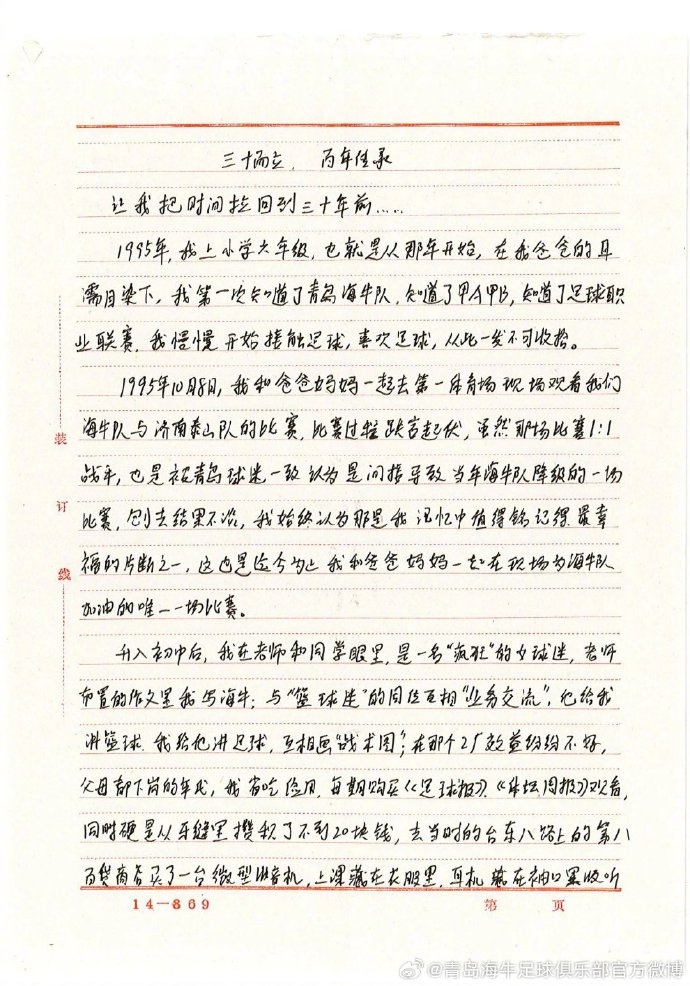 三十而立，百年传承
让我把时间拉回到三十年前……
1995年，我上小学六年级，也就是从那年开始，在我爸爸的耳
濡目染下，我第一次知道了青岛海牛队，知道了甲A甲B，知道了足球职
业联赛，我慢慢开始接触足球，喜欢足球，从此一发不可收拾。
1995年10月8日，我和爸爸妈妈一起去第一体育场现场观看我们
海牛队与济南泰山队的比赛，比赛过程跌宕起伏，虽然那场比赛1:1
战平，也是被青岛球迷一致认为是间接导致当年海牛队降级的一场
比赛，刨去结果不谈，我始终认为那是我记忆中值得铭记得最幸
福的片断之一，这也是迄今为止我和爸爸妈妈一起在现场为海牛队
加油的唯一一场比赛。
升入初中后，我在老师和同学眼里，是一名“疯狂”的女球迷，老师
布置的作文里我写海牛；与“篮球迷”的同位互相“业务交流”，他给我
讲篮球，我给他讲足球，互相画“战术图”；在那个工厂效益纷纷不好，
父母都下岗的年代，我省吃俭用，每期购买《足球报》、《体坛周报》观看，
同时硬是从牙缝里攒积了不到20块钱，去当时的台东八路上的第八
百货商店买了一台微型收音机，上课藏在衣服里，耳机藏在袖口里收听
装
订
线
14-869
第 页
@青岛海牛足球俱乐部官方微博